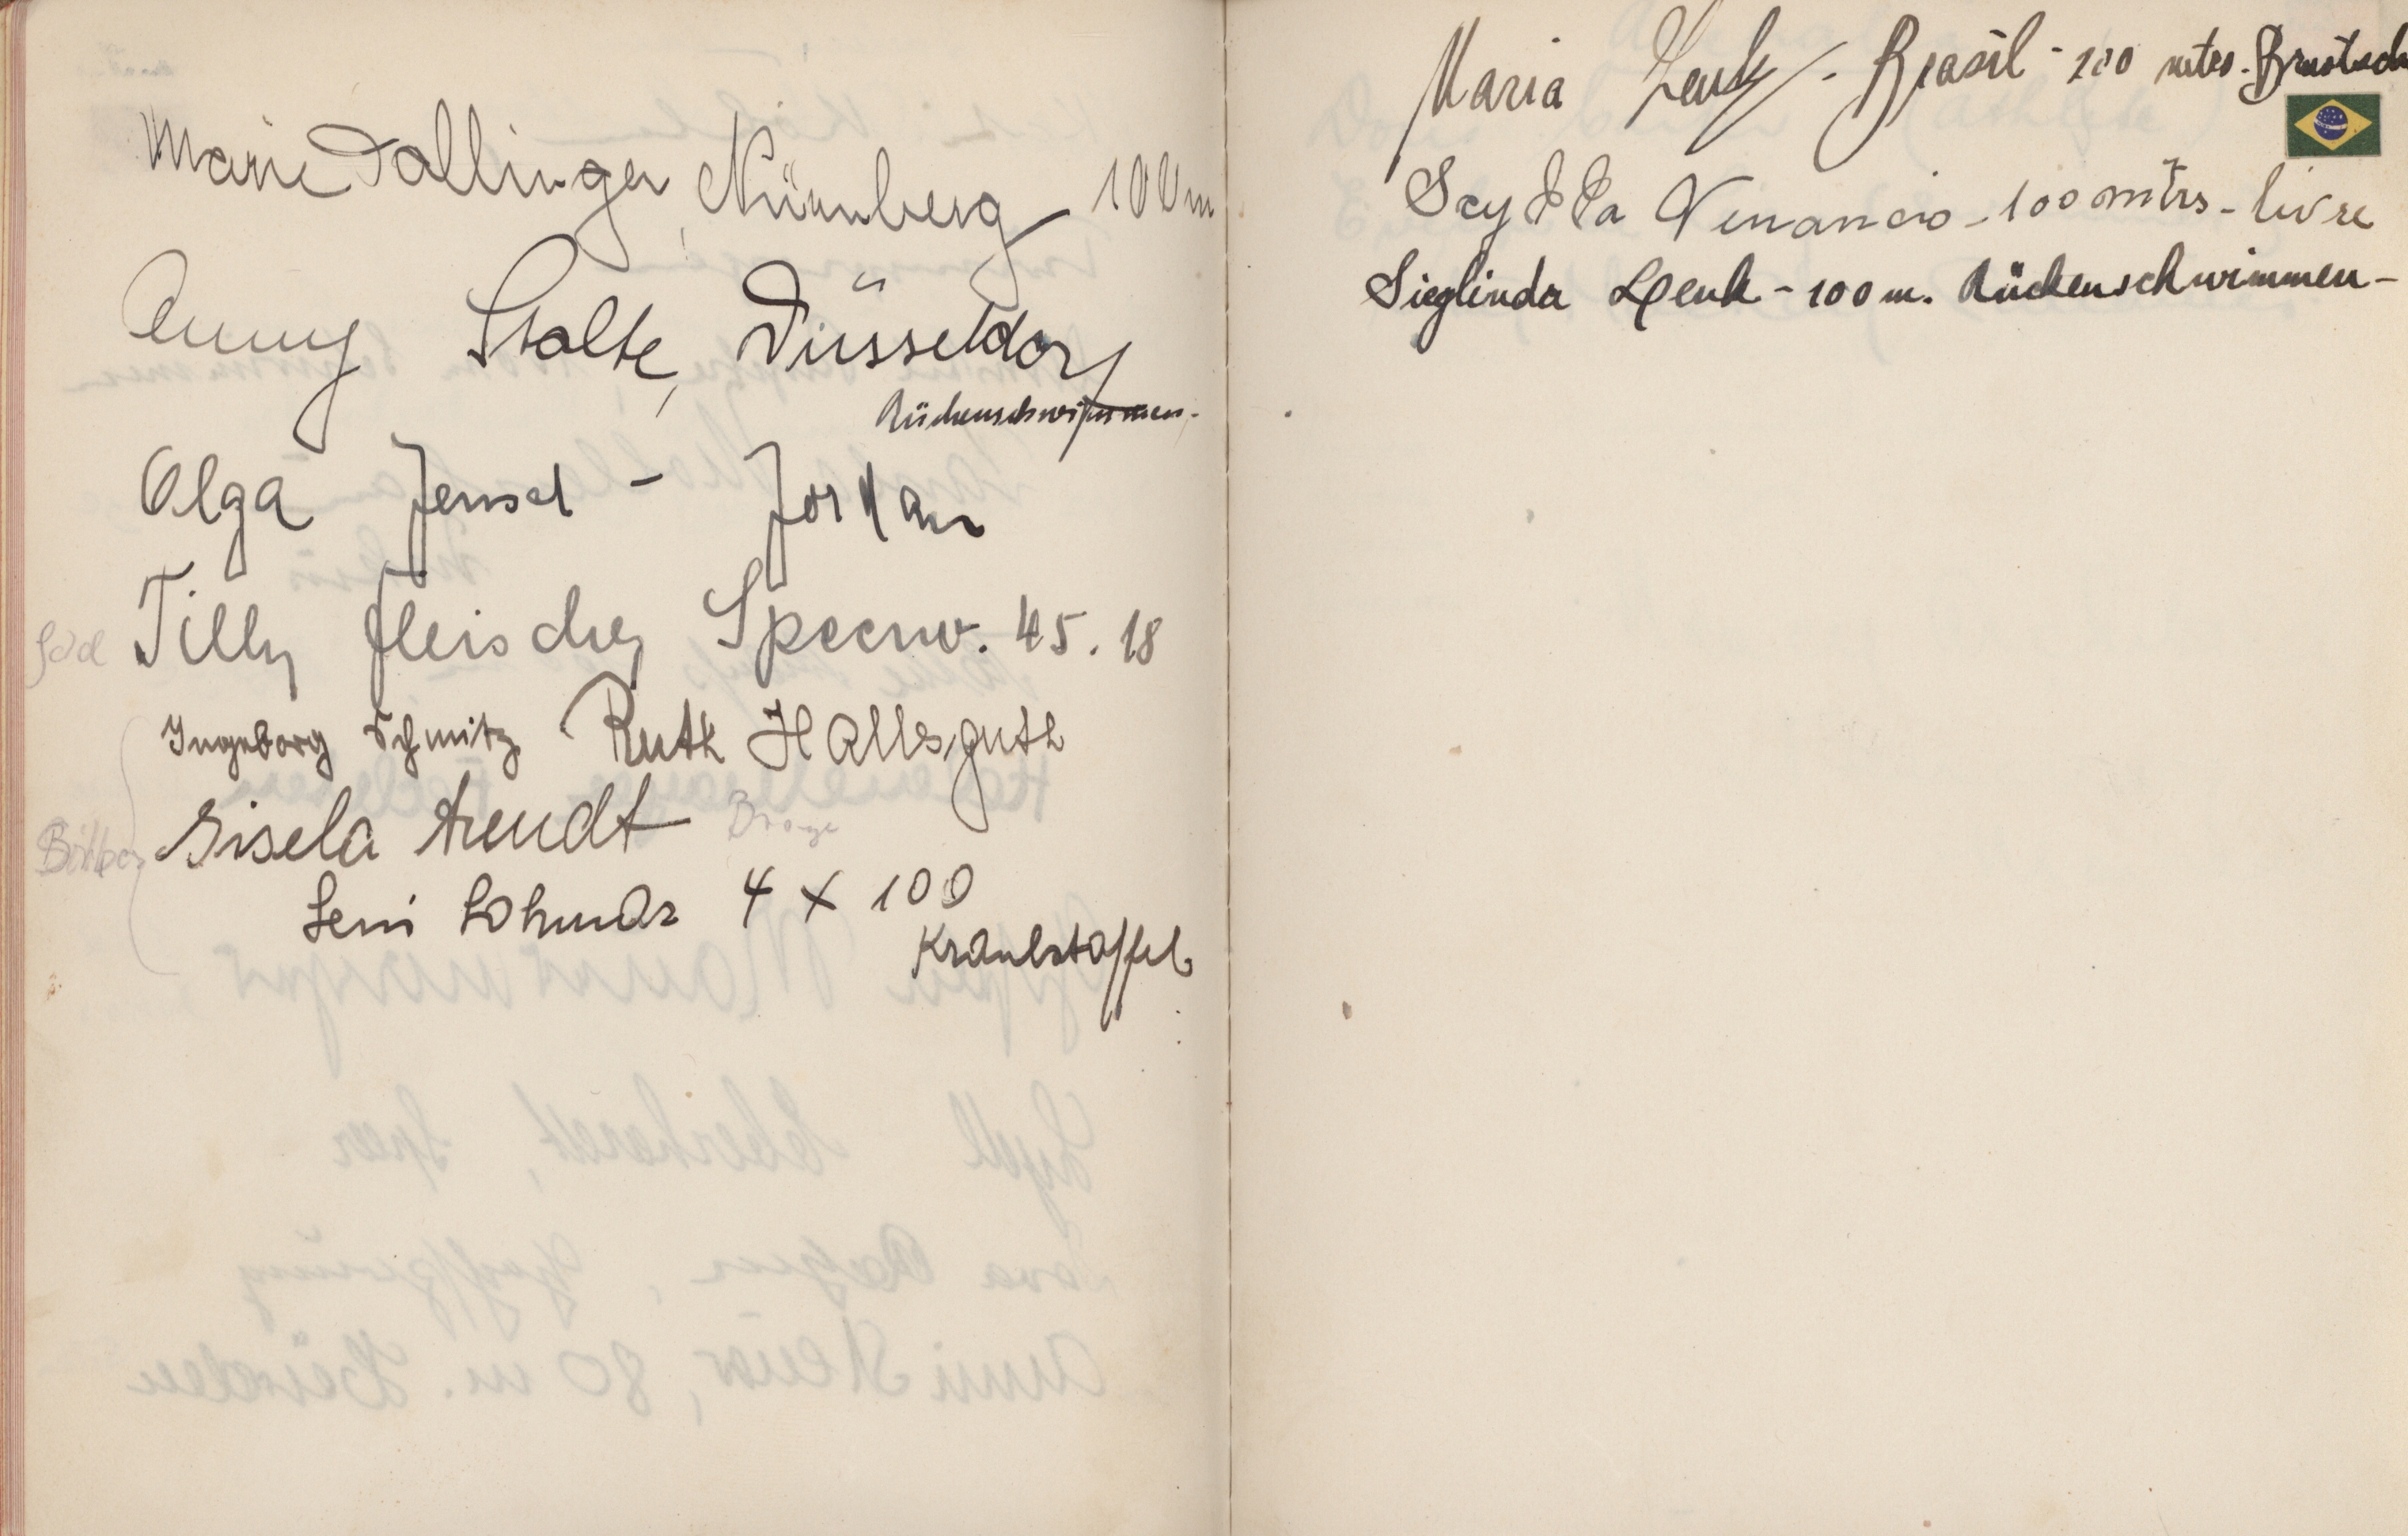 Marie Dollinger, Nürnberg 100m
Anny Stolte, Düsseldorf
Rückenschwimmen.
Olga Jensch - Jordan
Gold Tilly Fleischer Speerw. 45.18
Ingeborg Schmitz Ruth Halbsguth
Silber Gisela Arendt
Leni Lohmar 4 x 100
Kraulstaffel
Maria Lenk - Brasil - 200 metros - Brustschw
Scylla Venancio - 100 mtrs - livre
Sieglinda Lenk - 100 m. Rückenschwimmen -